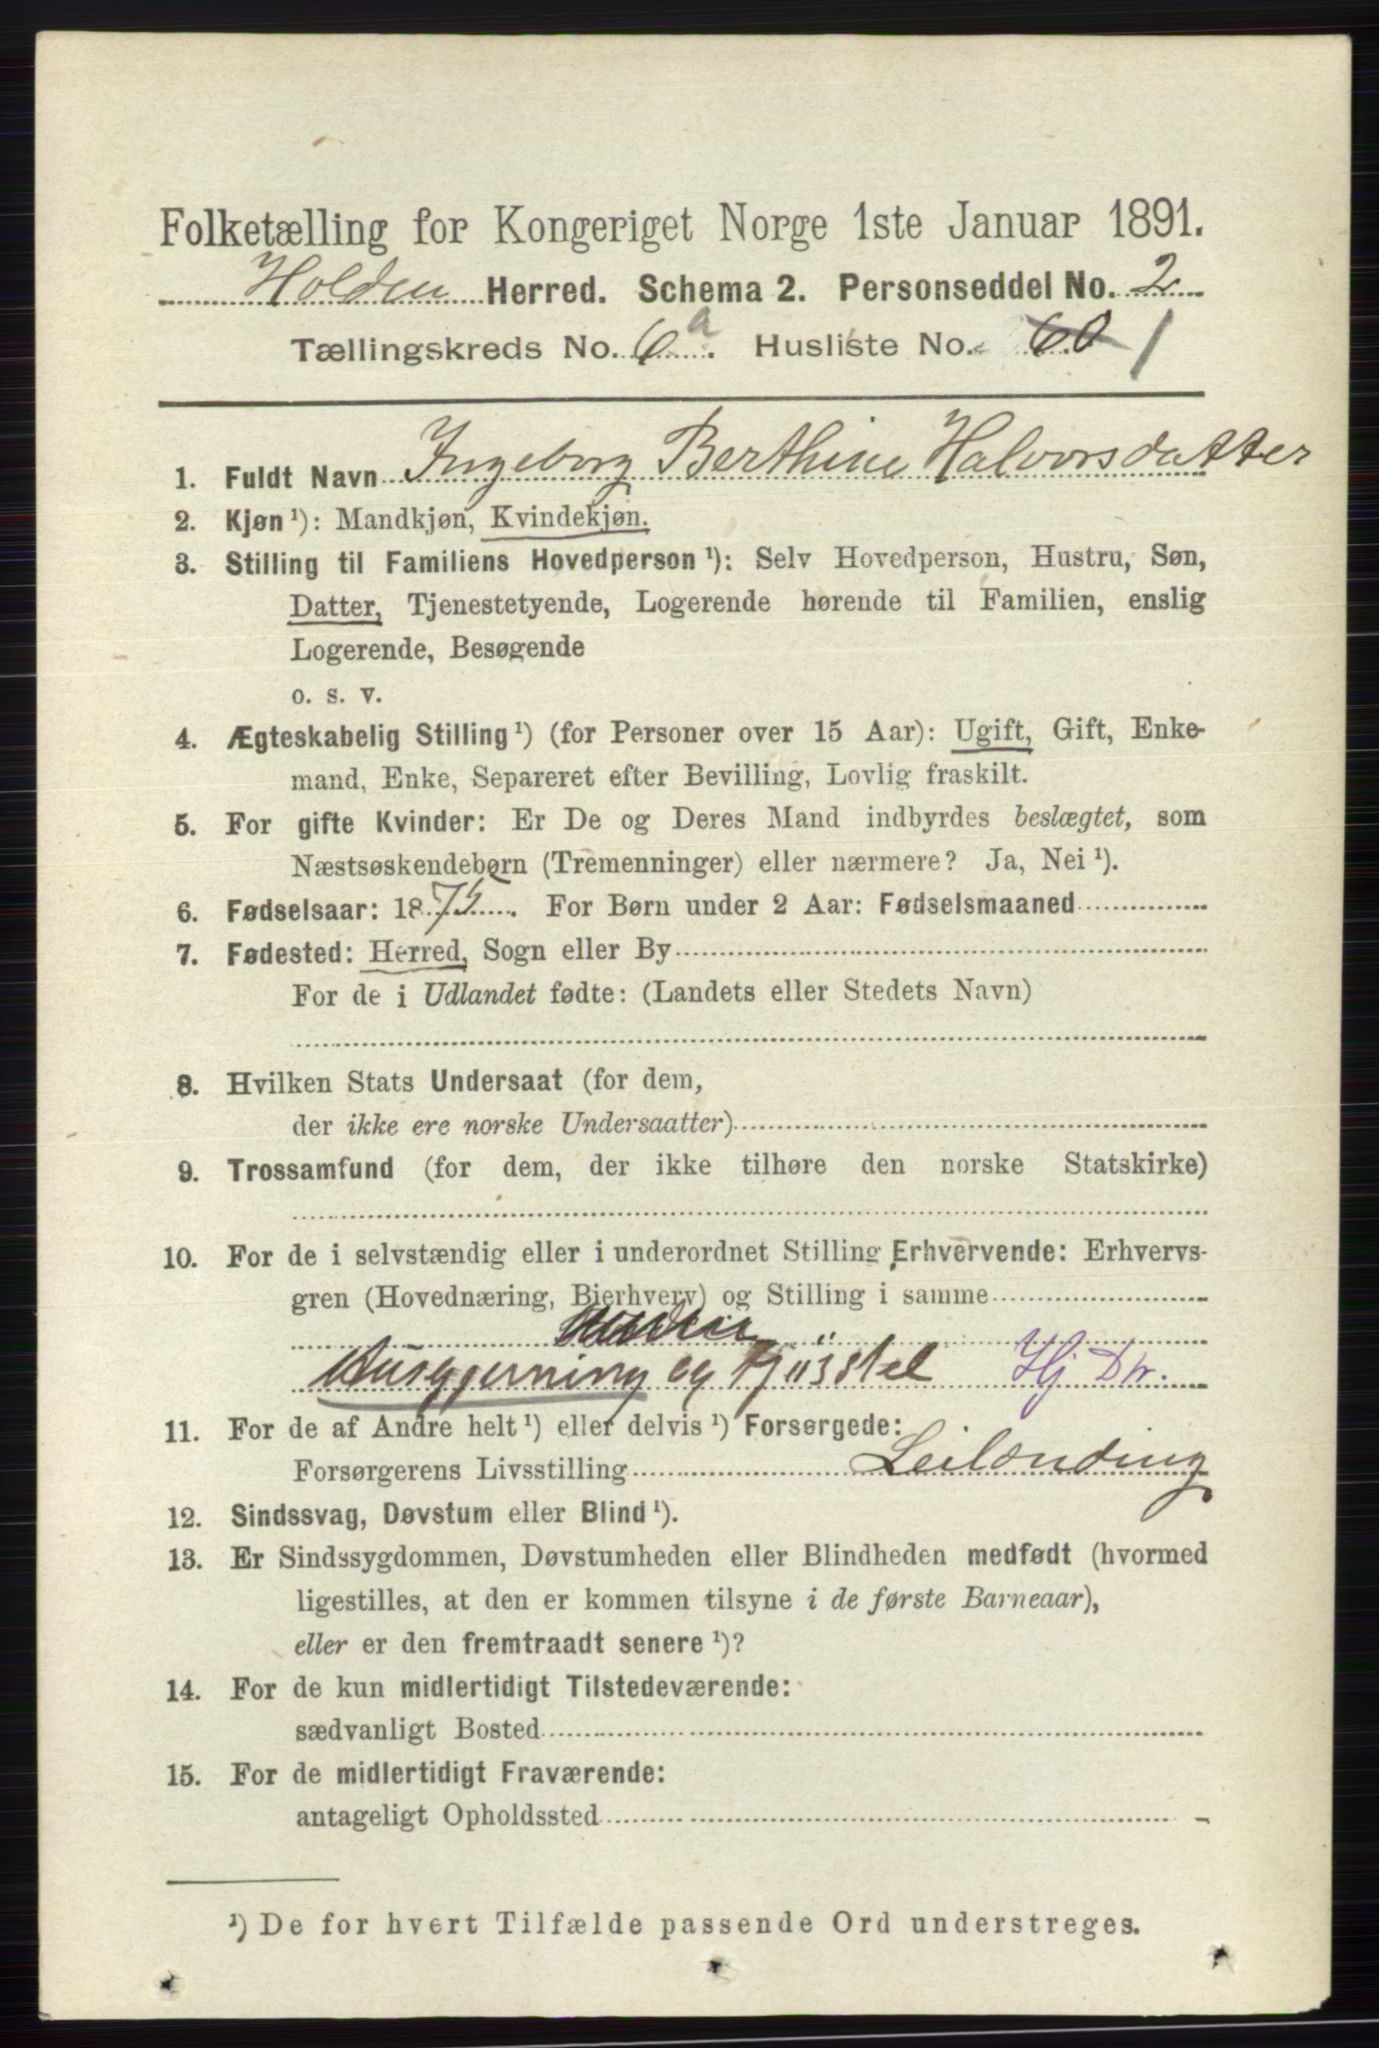 Folketælling for Kongeriget Norge 1ste Januar 1891.
Holden Herred. Schema 2. Personseddel No. 2
Tællingskreds No. 6a. Husliste No. 60 1
1. Fuldt Navn Ingeborg Berthine Halvorsdatter
2. Kjøn ¹): Mandkjøn, Kvindekjøn.
3. Stilling til Familiens Hovedperson ¹): Selv Hovedperson, Hustru, Søn,
Datter, Tjenestetyende, Logerende hørende til Familien, enslig
Logerende, Besøgende
o. s. v.
4. Ægteskabelig Stilling ¹) (for Personer over 15 Aar): Ugift, Gift, Enke-
mand, Enke, Separeret efter Bevilling, Lovlig fraskilt.
5. For gifte Kvinder: Er De og Deres Mand indbyrdes beslægtet, som
Næstsøskendebørn (Tremenninger) eller nærmere? Ja, Nei ¹).
6. Fødselsaar: 1875. For Børn under 2 Aar: Fødselsmaaned
7. Fødested: Herred, Sogn eller By
For de i Udlandet fødte: (Landets eller Stedets Navn)
8. Hvilken Stats Undersaat (for dem,
der ikke ere norske Undersaatter)
9. Trossamfund (for dem, der ikke tilhøre den norske Statskirke)
10. For de i selvstændig eller i underordnet Stilling Erhvervende: Erhvervs-
gren (Hovednæring, Bierhverv) og Stilling i samme
Husgjerning og Kjøsstel Hj Dtr.
11. For de af Andre helt ¹) eller delvis ¹) Forsørgede:
Forsørgerens Livsstilling Leilænding
12. Sindssvag, Døvstum eller Blind ¹).
13. Er Sindssygdommen, Døvstumheden eller Blindheden medfødt (hvormed
ligestilles, at den er kommen tilsyne i de første Barneaar),
eller er den fremtraadt senere ¹)?
14. For de kun midlertidigt Tilstedeværende:
sædvanligt Bosted
15. For de midlertidigt Fraværende:
antageligt Opholdssted
¹) De for hvert Tilfælde passende Ord understreges.